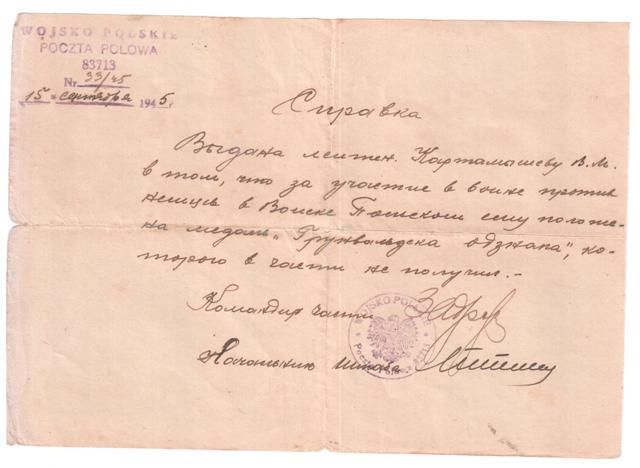 WOJSKO POLSKIE
POCZTA POLOWA
83713
Nr. 33/45
15 сентября 1945 г
Справка
Выдана лейтен. Картамышеву В. М.
в том, что за участие в войне против
немцев в Войске Польском ему положе-
на медаль „Грунвальдска одзнака", ко-
торого в части не получил. -
Командир части
Начальник штаба
WOJSKO POLSKIE
83713